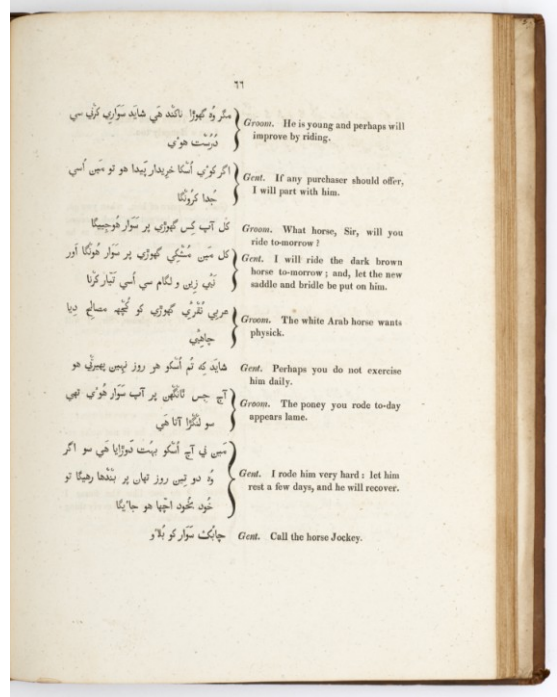 ٦٦
مگر وُه گھوڑا ناکند هَي شايَد سَوَارِي کرْني سي
دُرُسْت هوْي
Groom. He is young and perhaps will
improve by riding.
اگر کوئي اُسْکا خرِيدار پَيدا هو تو مَين اُسي
جُدا کرُونْگا
Gent. If any purchaser should offer,
I will part with him.
کل آپ کِس گھوڑي پر سَوار هُوجِييگا
Groom. What horse, Sir, will you
ride to-morrow ?
کل مَين مُشْکِي گھوڑي پر سَوار هُونْگا اَور
نَئِي زِين و لگام سي اُسي تَيّار کرْنا
Gent. I will ride the dark brown
horse to-morrow ; and, let the new
saddle and bridle be put on him.
عربِي نُقْرئِي گھوڑي کو کُچھ مصالِح دِيا
چاهِئي
Groom. The white Arab horse wants
physick.
شايَد که تُم اُسْکو هر روز نہِين پھيرْتي هو
Gent. Perhaps you do not exercise
him daily.
آج جِس ٹانْگھن پر آپ سَوار هُوئي تھي
سو لنْگڑا آتا هَي
Groom. The poney you rode to-day
appears lame.
مَين ني آج اُسْکو بہُت دَوڑايا هَي سو اگر
وُه دو تِين روز تھان پر بنْدھا رهيگا تو
خُود بخُود اچّھا هو جائيگا
Gent. I rode him very hard : let him
rest a few days, and he will recover.
چابُک سَوار کو بُلاؤ
Gent. Call the horse Jockey.